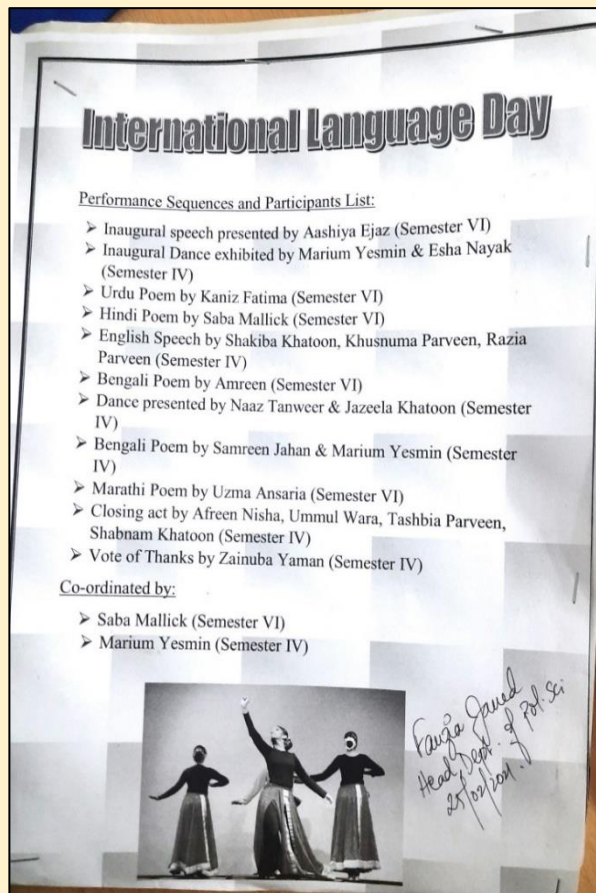 International Language Day
Performance Sequences and Participants List:
➤ Inaugural speech presented by Aashiya Ejaz (Semester VI)
➤ Inaugural Dance exhibited by Marium Yesmin & Esha Nayak
(Semester IV)
➤ Urdu Poem by Kaniz Fatima (Semester VI)
➤ Hindi Poem by Saba Mallick (Semester VI)
➤ English Speech by Shakiba Khatoon, Khusnuma Parveen, Razia
Parveen (Semester IV)
➤ Bengali Poem by Amreen (Semester VI)
➤ Dance presented by Naaz Tanweer & Jazeela Khatoon (Semester
IV)
➤ Bengali Poem by Samreen Jahan & Marium Yesmin (Semester
IV)
➤ Marathi Poem by Uzma Ansaria (Semester VI)
➤ Closing act by Afreen Nisha, Ummul Wara, Tashbia Parveen,
Shabnam Khatoon (Semester IV)
➤ Vote of Thanks by Zainuba Yaman (Semester IV)
Co-ordinated by:
➤ Saba Mallick (Semester VI)
➤ Marium Yesmin (Semester IV)
Fauzia Javed
Head, Dept. of Pol. Sci
25/02/2021.